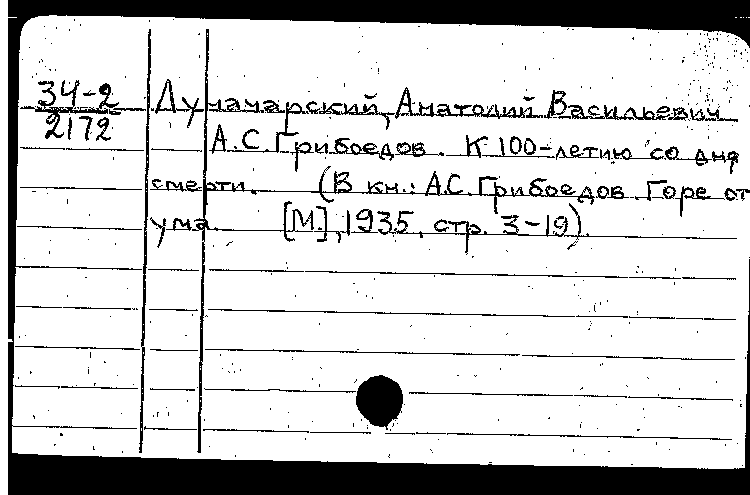 34-2
2172
Луначарский, Анатолий Васильевич
А.С. Грибоедов. К 100-летию со дня
смерти. (В кн.: А.С. Грибоедов. Горе от
ума. [М.], 1935, стр. 3-19).